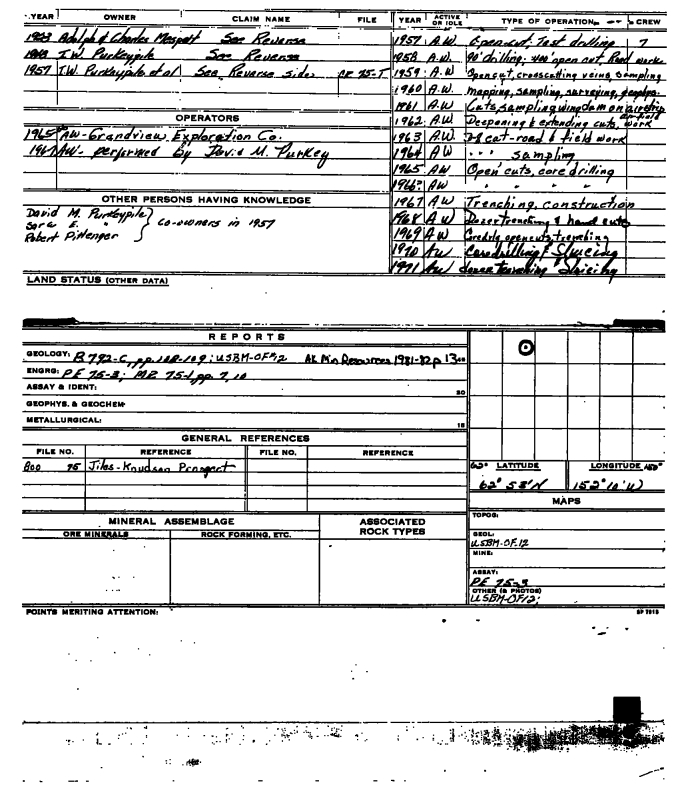 YEAR OWNER CLAIM NAME FILE
Adolph & Charles See Reverse
I.W. Purkeypile See Reverse
1957 I.W. Purkeypile et al See Reverse side PE 75-T
OPERATORS
1965 AW - Grandview Exploration Co.
AW - performed by David M. Purkey
OTHER PERSONS HAVING KNOWLEDGE
David M. Purkeypile
Sara E. "
Robert Pittenger
} Co-owners in 1957
LAND STATUS (OTHER DATA)
YEAR ACTIVE OR IDLE TYPE OF OPERATION CREW
1957 A.W. Open cut, Test drilling 7
1958 A.W. 90' drilling, open cut, Road work
1959 A.W. Open cut, crosscutting veins, sampling
1960 A.W. mapping, sampling, surveying, geophys.
1961 A.W. Cuts, sampling wing dam on airstrip
1962 A.W. Deepening & extending cuts, work
1963 A.W. cat-road & field work
1964 A.W. " " sampling
1965 AW Open cuts, core drilling
1966 AW " " "
1967 A.W Trenching, construction
1968 A.W Dozer trenching & hand cuts
1969 AW open cuts, trenching
1970 AW Core drilling & Sluicing
1971 AW dozer trenching Sluicing
REPORTS
GEOLOGY: B 792-C, pp. 108-109; USBM-OF#12 AK Min Resources 1981-82 p 13
ENGRG: PE 75-3; MR 75-1, pp. 7, 10
ASSAY & IDENT: 20
GEOPHYS. & GEOCHEM:
METALLURGICAL: 15
GENERAL REFERENCES
FILE NO. REFERENCE FILE NO. REFERENCE
75 Jiles-Knudson Prospect
MINERAL ASSEMBLAGE
ORE MINERALS ROCK FORMING, ETC.
ASSOCIATED ROCK TYPES
62° LATITUDE LONGITUDE
62° 53'N 152° 10'W
MAPS
TOPOG:
GEOL:
USBM-OF.12
MINE:
ASSAY:
PE 75-3
OTHER (& PHOTOS)
USBM-OF12;
POINTS MERITING ATTENTION: